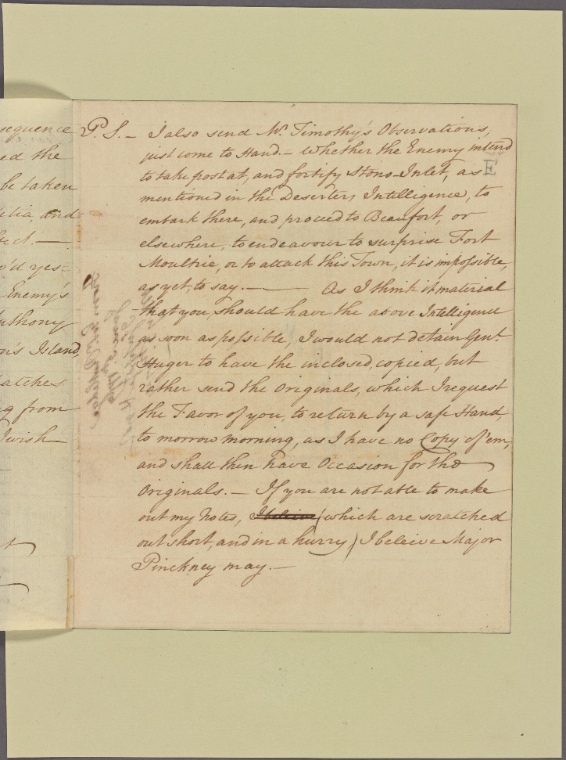 sequence
ed the
be taken
itia, and
ect. —
o'd yes-
Enemy's
nthony
on's Island
atches
g from
I wish
t
P.S. — I also send Mr. Timothy's Observations,
just come to Hand. — Whether the Enemy intend
to take post at, and fortify Stono-Inlet, as
E
mentioned in the Deserters Intelligence, to
embark there, and proceed to Beaufort, or
elsewhere, to endeavour to surprise Fort
Moultrie, or to attack this Town, it is impossible,
as yet to say. — As I think it material
that you should have the above Intelligence
as soon as possible, I would not detain Genl.
Huger to have the inclosed, copied, but
rather send the Originals, which I request
the Favor of you, to return by a safe Hand,
to morrow morning, as I have no Copy of 'em,
and shall then have Occasion for the
Originals. — If you are not able to make
out my Notes, I beleive (which are scratched
out short, and in a hurry) I beleive Major
Pinckney may. —